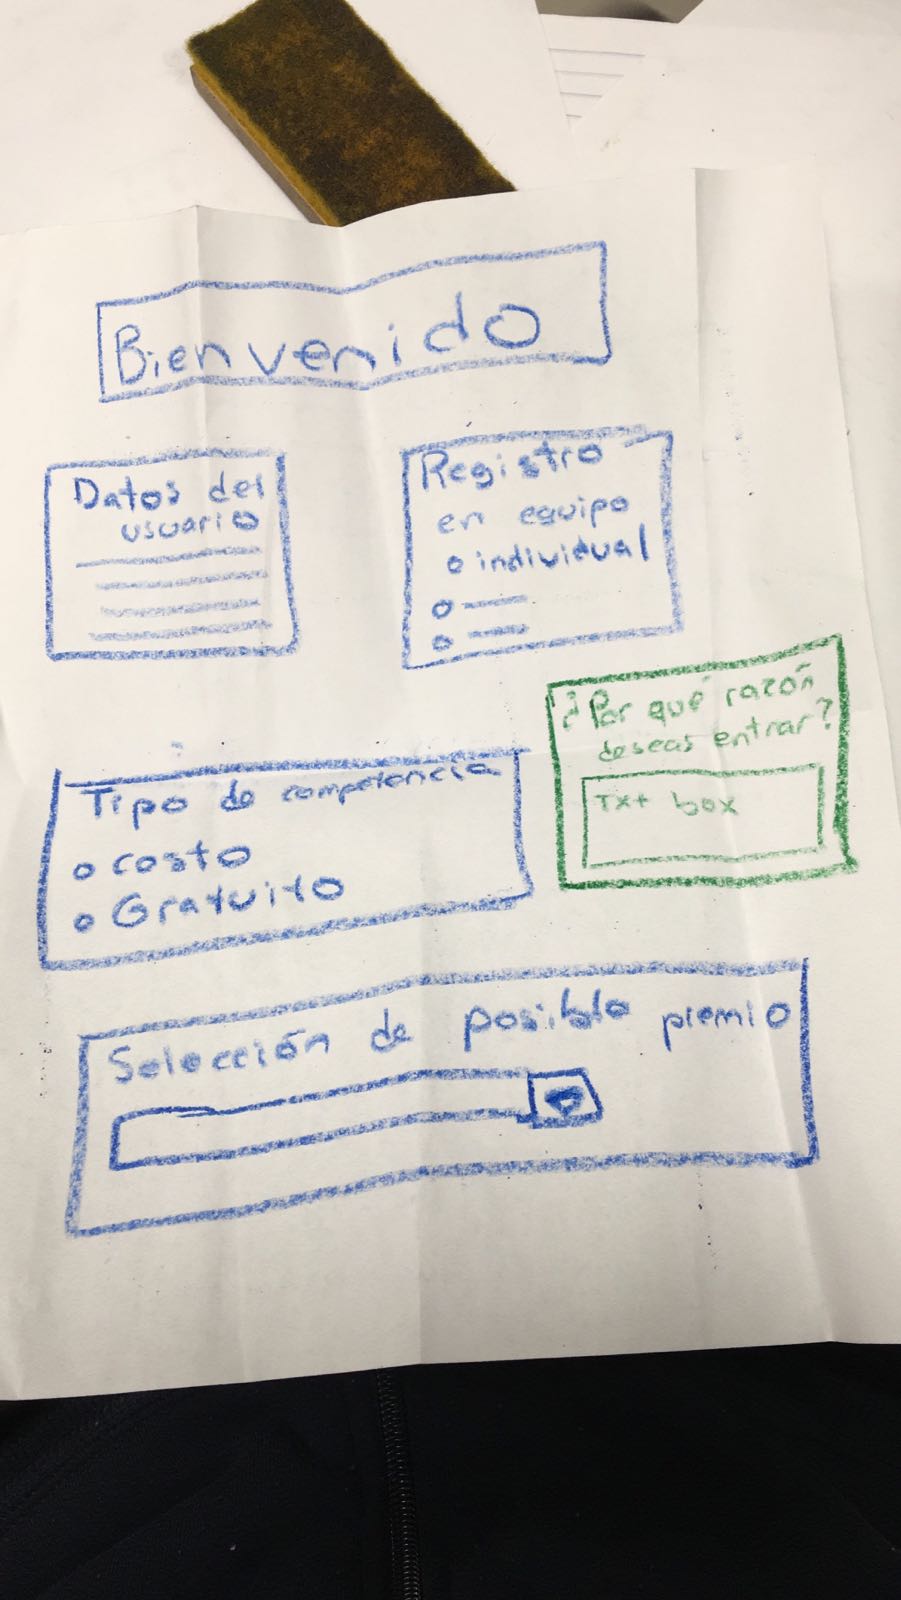 Bienvenido
Datos del
usuario
Registro
en equipo
o individual
¿Por qué razón
deseas entrar?
Txt box
Tipo de competencia
o costo
o Gratuito
Selección de posible premio